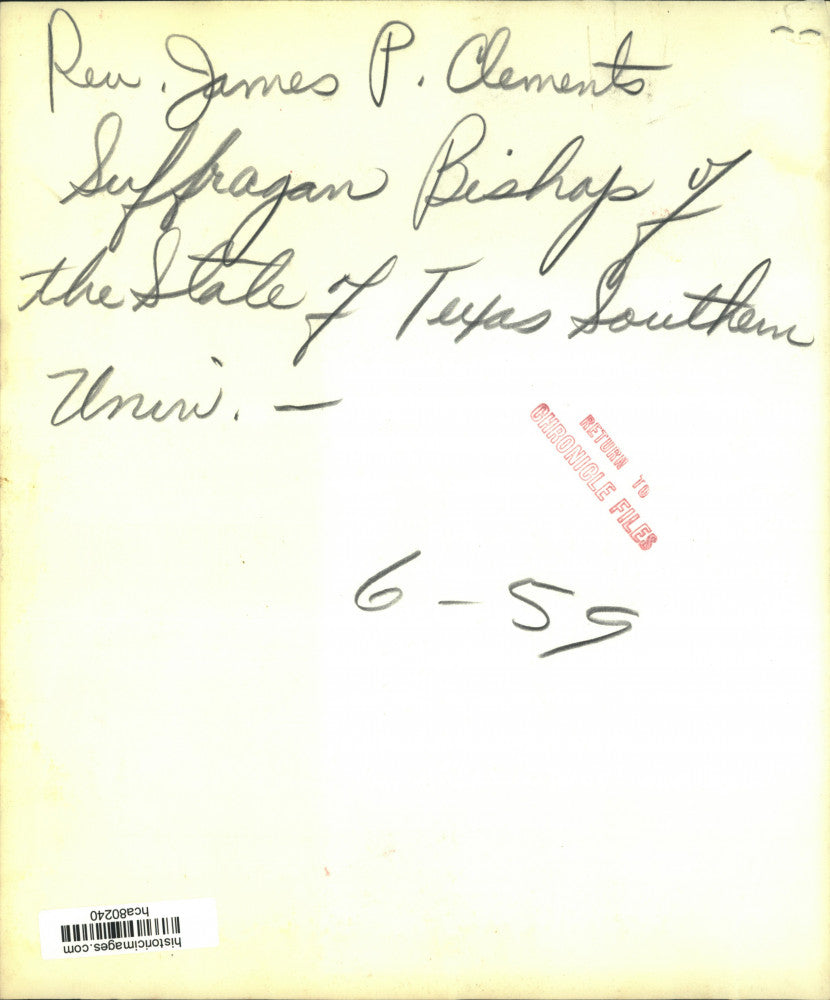 Rev. James P. Clements
Suffragan Bishop of
the State of Texas Southern
Univ. —
RETURN TO
CHRONICLE FILES
6 - 59
historicimages.com
hca80240